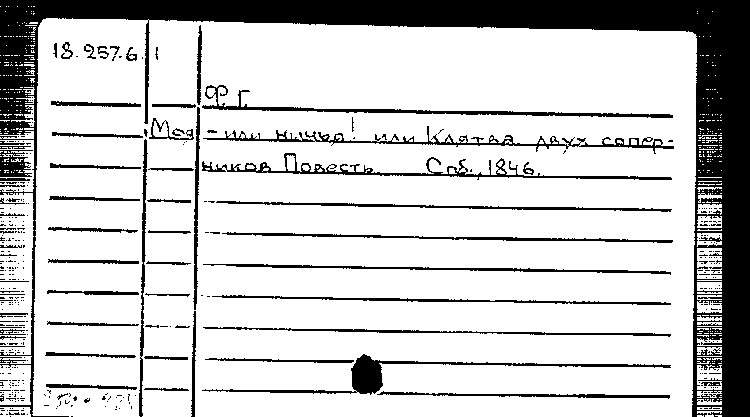 18.257.6.1
Ф. Г.
Моя - или ничья! или Клятва двух сопер-
ников Повесть Спб., 1846.